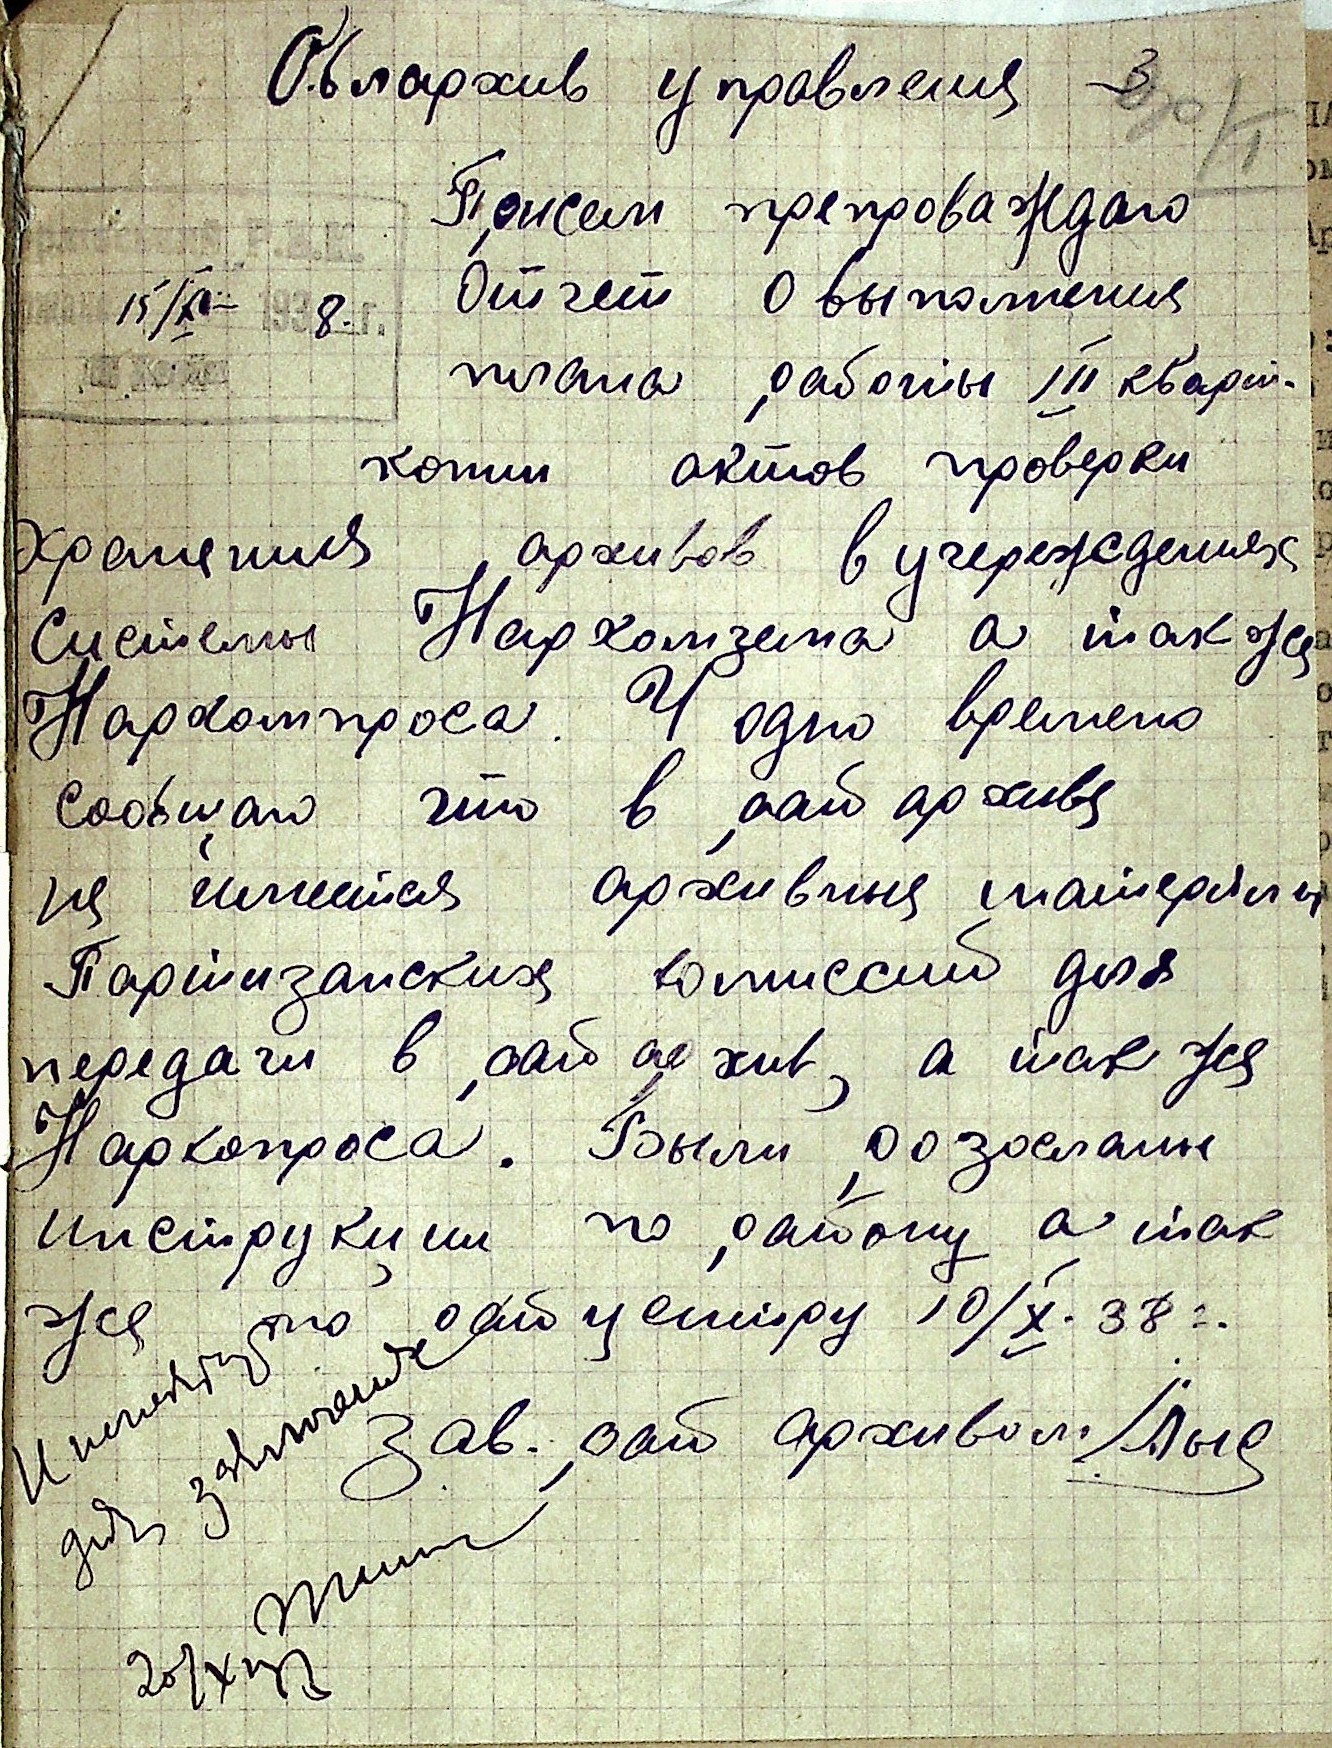 Облархив управления 3
При сем препроваждаю
15/XI 193 8 г.
Отчет о выполнения
плана работы III кварт.
копии актов проверки
хранения архивов в учереждениях
Системы Наркомзема а так же
Наркомпроса. И одно времено
сообщаю что в рай архиве
не имеется архивные материлы
Партизанских комиссий для
передачи в рай архив, а так же
Наркопроса. Были розосланы
инструкции по району а так
же по рай центру 10/X. 38 г.
Зав. рай архивом
для заключения